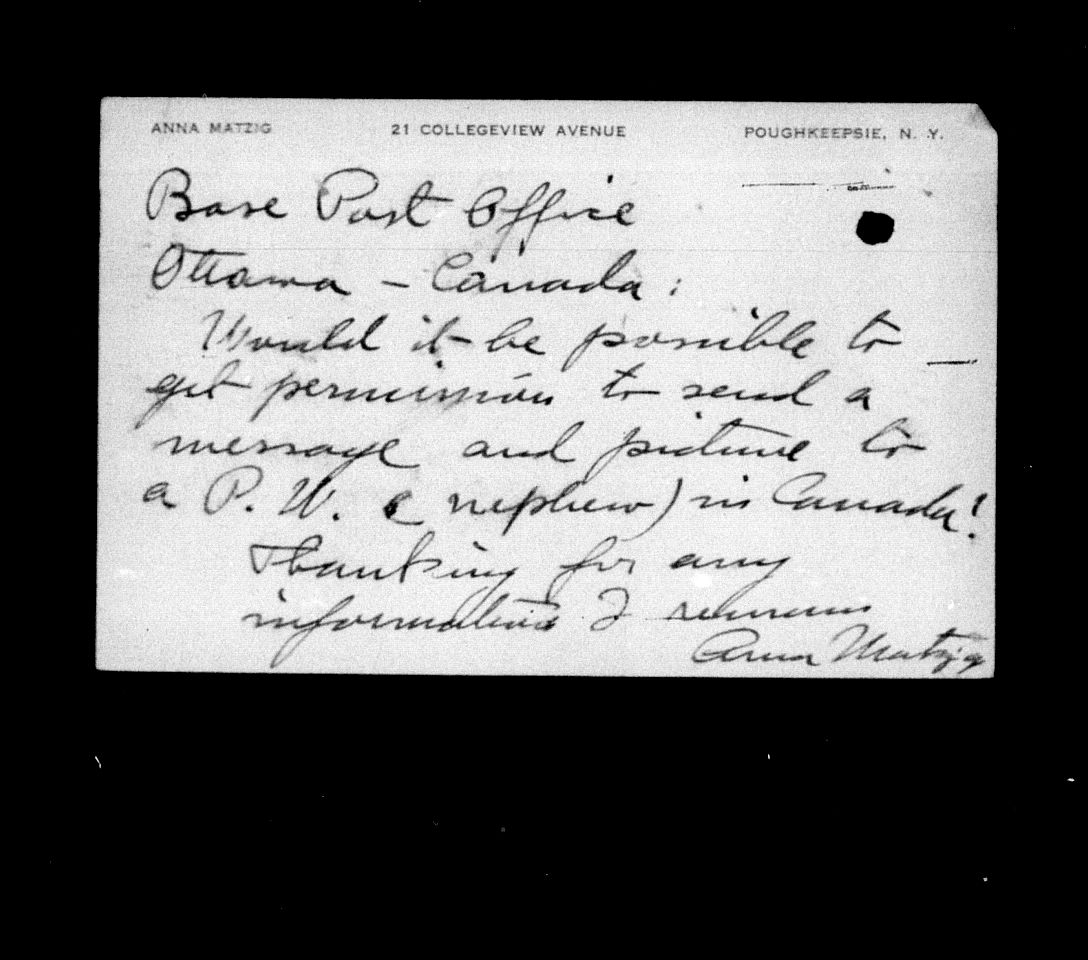 ANNA MATZIG 21 COLLEGEVIEW AVENUE POUGHKEEPSIE, N. Y.
Base Post Office
Ottawa - Canada:
Would it be possible to
get permission to send a
message and picture to
a P. W. ( nephew) in Canada!
Thanking for any
information I remain
Anna Matzig